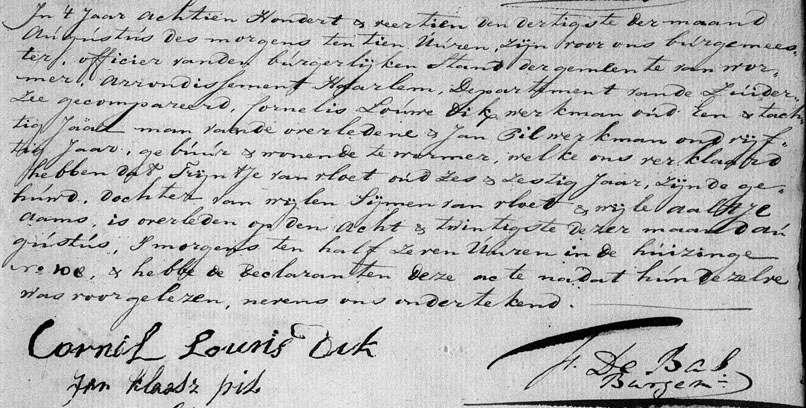 In 't Jaar achtien Hondert & veertien den dertigste der maand
Augustus des morgens ten tien Uuren, Zijn voor ons burgemees-
ter, officier vanden burgerlijken Stand der gemeente van wor-
mer, arrondissement Haarlem, Departement vande Zuider-
Zee gecompareerd, Cornelis Louwe Dik, werkman oud Een & tach-
tig Jaar man vande overledene & Jan Pil werkman oud vijf-
tig Jaar, gebuur & wonende te wormer, welke ons verklaard
hebben dat Trijntje van vloet oud Zes & Zestig Jaar, Zijnde ge-
huwd, dochter van wijlen Sijmen van vloet & wijle aaltje
aams, is overleden op den Acht & twintigste dezer maand au
gustus, s morgens ten half Zeven Uuren in de huizinge
No 108, & hebbe de Declaranten deze acte nadat hun dezelve
was voorgelezen, nevens ons ondertekend.
Cornil Louris Dik
Jan klaasz pil
De Bas
Burgem: